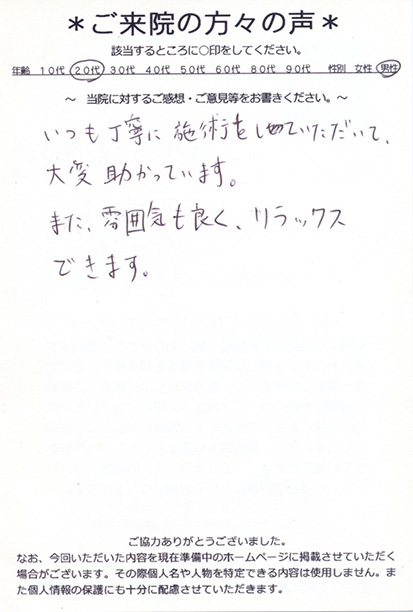 ＊ご来院の方々の声＊
該当するところに○印をしてください。
年齢 10代 20代 30代 40代 50代 60代 80代 90代 性別 女性 男性
～ 当院に対するご感想・ご意見等をお書きください。～
いつも丁寧に施術をしていただいて、
大変助かっています。
また、雰囲気も良く、リラックス
できます。
ご協力ありがとうございました。
なお、今回いただいた内容を現在準備中のホームページに掲載させていただく
場合がございます。その際個人名や人物を特定できる内容は使用しません。ま
た個人情報の保護にも十分に配慮させていただきます。